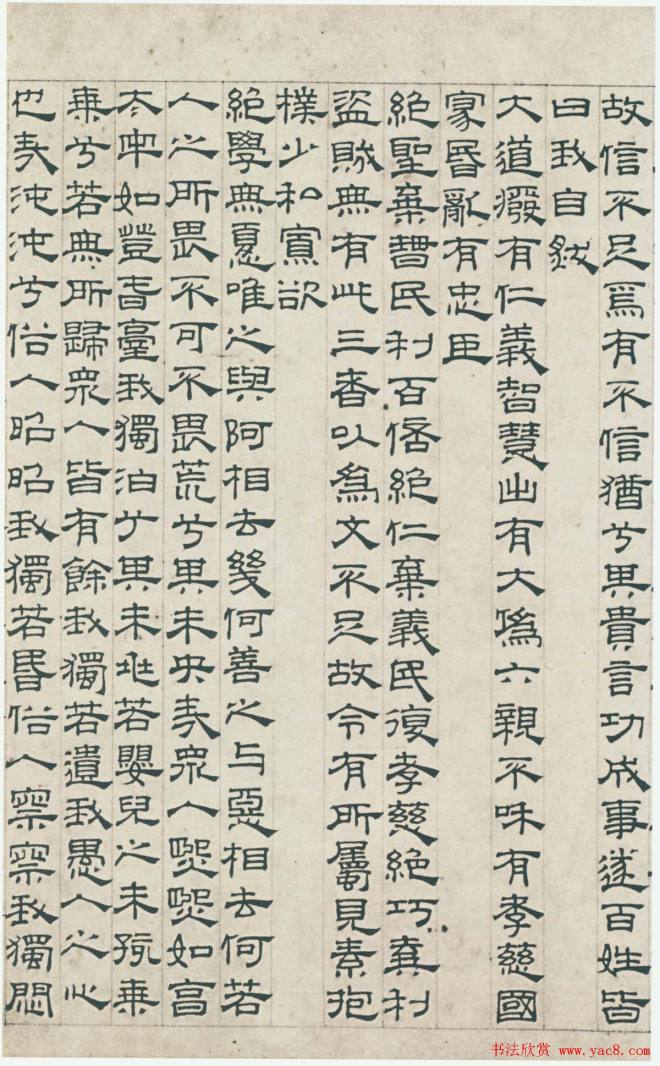 故信不足焉有不信猶兮其貴言功成事遂百姓皆
曰我自然
大道廢有仁義智慧出有大偽六親不和有孝慈國
家昏亂有忠臣
絕聖棄智民利百倍絕仁棄義民復孝慈絕巧棄利
盜賊無有此三者以為文不足故令有所屬見素抱
樸少私寡欲
絕學無憂唯之與阿相去幾何善之与惡相去何若
人之所畏不可不畏荒兮其未央哉眾人熙熙如享
太牢如登春臺我獨泊兮其未兆若嬰兒之未孩乘
乘兮若無所歸眾人皆有餘我獨若遺我愚人之心
也哉沌沌兮俗人昭昭我獨若昏俗人察察我獨悶
书法欣赏 www.yac8.com